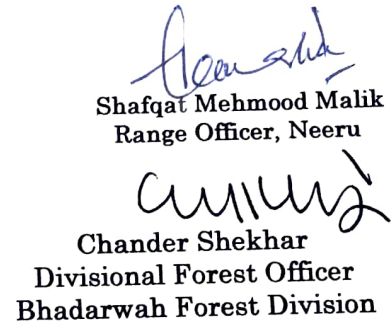 Shafqat Mehmood Malik
Range Officer, Neeru
Chander Shekhar
Divisional Forest Officer
Bhadarwah Forest Division